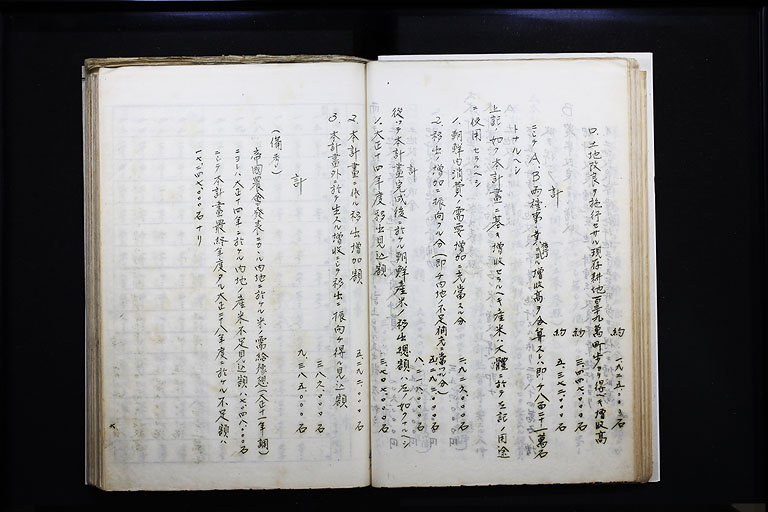 ロ、土地改良ヲ施行セサル現存耕地百二十九萬町歩ヨリ得ヘキ増收高
約 一、九二五、〇〇〇石
約 三、四四八、〇〇〇石
計 約 五、三七三、〇〇〇石
ニシテABノ両種事業ニ依ル増收高ヲ合算スレハ即チ八百二十一萬石
トナルヘシ
上記ノ如ク本計畫ニ基キ増收セラルヘキ産米ハ大體ニ於テ左記ノ用途
ニ使用セラルヘシ
1、朝鮮内消費ノ需要増加ニ充當スル分 二、九二六、〇〇〇石
2、移出ノ増加ニ振向クル分(即チ内地ノ不足補充ニ當ツル分) 五、二九二、〇〇〇石
計 八、二一八、〇〇〇石
從ツテ本計畫完成後ニ於ケル朝鮮産米ノ移出總額ハ左ノ如クナルヘシ
1、大正十四年度移出見込額 三、七〇七、〇〇〇石
2、本計畫ニ依ル移出増加額 五、二九二、〇〇〇石
3、本計畫外ニ於テ生スル増收ニシテ移出ニ振向ケ得ル見込額 三八六、〇〇〇石
計 九、三八五、〇〇〇石
(備考)
帝國農會ノ發表ニカヽル内地ニ於ケル米ノ需給豫想(大正十一年調)
ニヨレハ大正十四年ニ於ケル内地ノ産米不足見込額ハ七、〇四八、〇〇〇石
ニシテ本計畫最終年度タル大正二十八年度ニ於ケル不足額ハ
一七、二四七、〇〇〇石ナリ